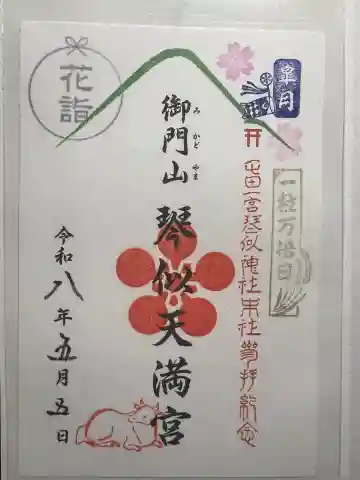 皐月
一粒万倍日
屯田一宮琴似神社末社兼拝紀念
御門山
みかどやま
琴似天満宮
花詣
令和八年五月五日